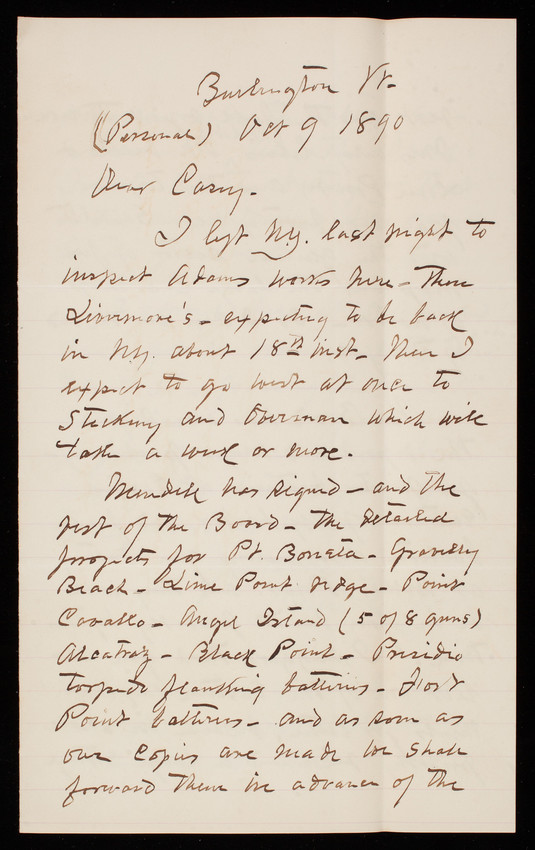 Burlington Vt.
(Personal) Oct 9 1890
Dear Casey.
I left N.Y. last night to
inspect Adams works here - then
Livermore's - expecting to be back
in N.Y. about 18th inst. Then I
expect to go west at once to
Stickney and Overman which will
take a week or more.
Mendell has signed - and the
rest of the Board - the detailed
projects for Pt. Boneta - Gravelly
Beach - Lime Point ridge - Point
Cavallo - Angel Island (5 of 8 guns)
Alcatraz - Black Point - Presidio
torpedo flanking batteries - Fort
Point batteries - and as soon as
our copies are made we shall
forward them in advance of the